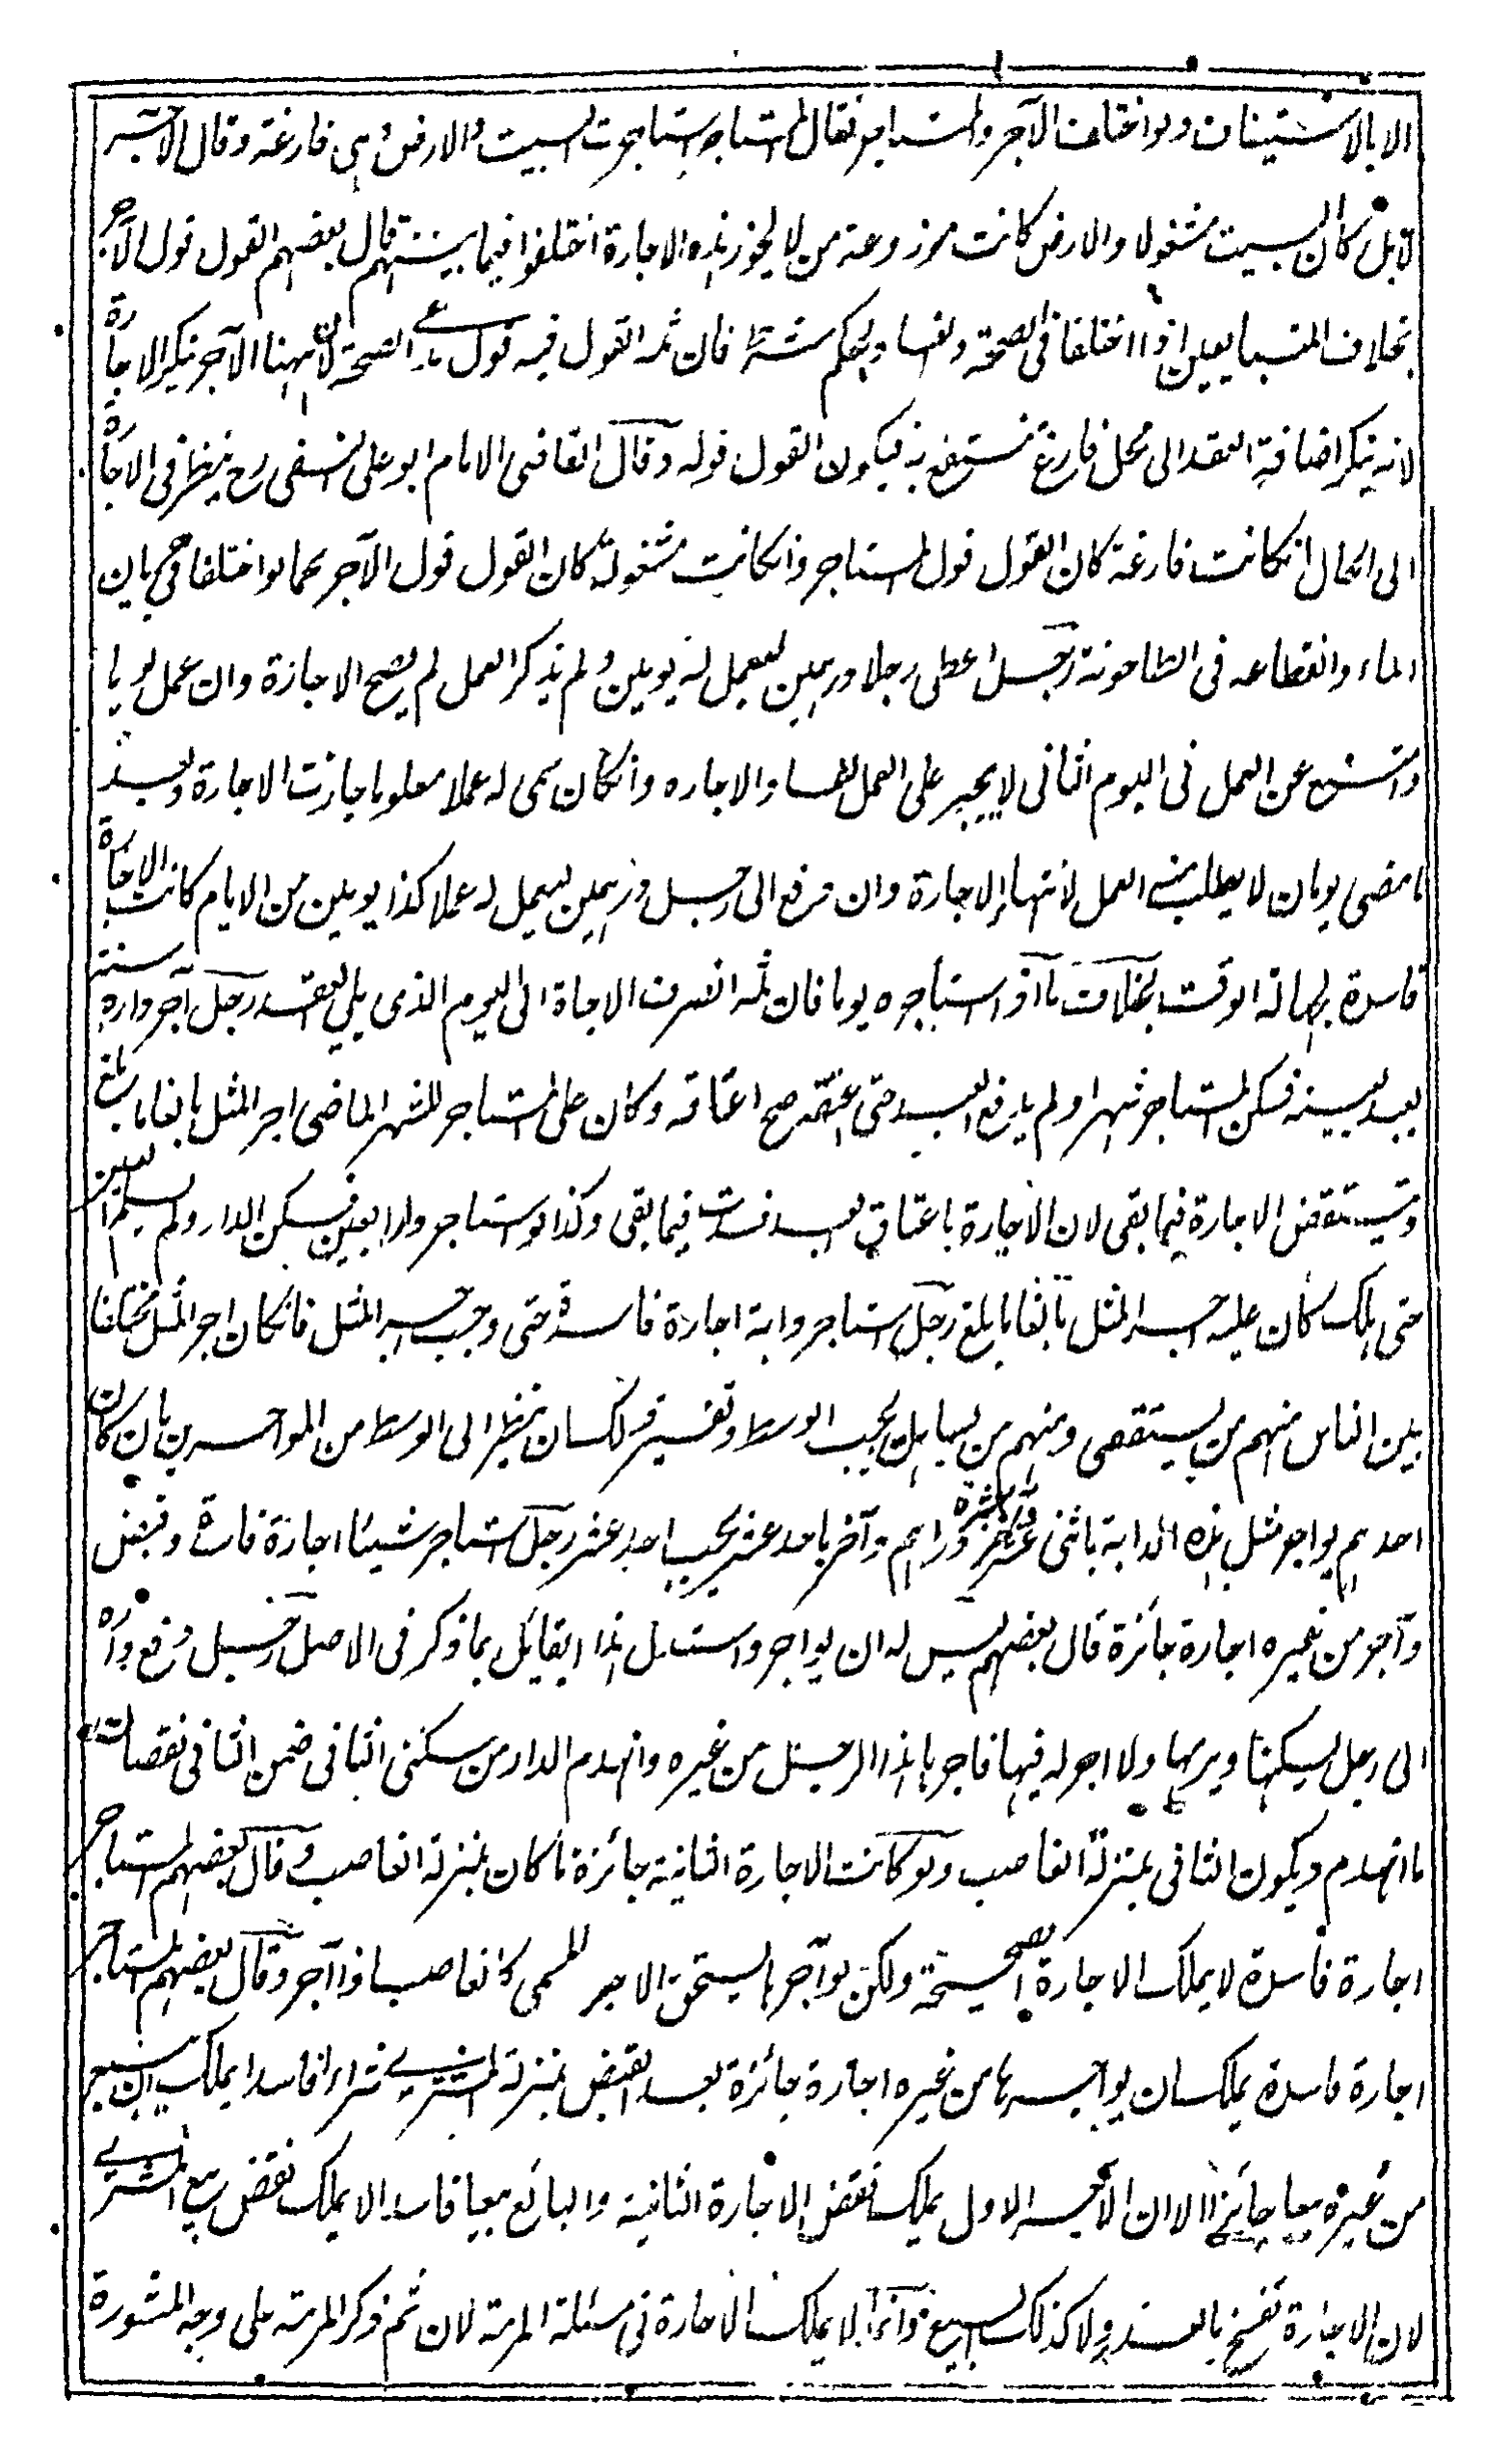 الا بالاستيناف ولو اختلف الآجر والمستاجر فقال المستاجر استاجرت البيت والارض وهى فارغة وقال الآجر
لا بل كان البيت مشغولا والارض كانت مزروعة من لا يجوز هذه الاجارة اختلفوا فيما بينهم قال بعضهم القول قول الآجر
بخلاف المتبايعين اذا اختلفا فى الصحة والفساد بحكم شرط فان ثمه القول فيه قول مدعى الصحة لان ههنا الآجر ينكر الاجارة
لانه ينكر اضافة العقد الى محل فارغ منتفع به فيكون القول قوله وقال القاضى الامام ابو على النسفى رح ينظر فى الاجارة
الى الحال ان كانت فارغة كان القول قول المستاجر وانكانت مشغولة كان القول قول الآجر كما لو اختلفا فى جريان
الماء وانقطاعه فى الطاحونة رجل اعطى رجلا درهمين ليعمل له يومين ولم يذكر العمل لم يصح الاجازة وان عمل يوما
وامتنع عن العمل فى اليوم الثانى لا يجبر على العمل لفساد الاجاره وانكان سمى له عملا معلوما جازت الاجارة وبعد
ما مضى يومان لا يطلب منه العمل لانتهاء الاجارة وان دفع الى رجل درهمين ليعمل له عملا كذا يومين من الايام كانت الاجارة
فاسدة لجهالة الوقت بخلاف ما اذا استأجره يوما فان ثمه انصرف الاجاة الى اليوم الذى يلى العقد رجل آجر داره سنة
بعبد بعينه فسكن المستاجر شهرا ولم يدفع العبد حتى اعتقه صح اعتاقه وكان على المستاجر للشهر الماضى اجر المثل بالغا ما بلغ
وينتقض الاجارة فيما بقى لان الاجارة باعتاق العبد فسدت فيما بقى وكذا لو استاجر دارا بعين فسكن الدار ولم يسلم العين
حتى هلك كان عليه اجر المثل بالغا ما بلغ رجل استاجر دابة اجارة فاسدة حتى وجب اجر المثل فانكان اجر المثل مختلفا
بين الناس منهم من يستقصى ومنهم من يساهل يجب الوسط وتفسير ذلك ان ينظر الى الوسط من المواجرين بان كان
احدهم يواجر مثل هذه الدابة باثنى عشر وآخر بعشرة دراهم وآخر باحد عشر يجب احد عشر رجل استاجر شيئا اجازة فاسدة وقبض
وآجر من غيره اجارة جائزة قال بعضهم ليس له ان يواجر واستدل هذا القائل بما ذكر فى الاصل رجل دفع داره
الى رجل ليسكنها ويرمها ولا اجر له فيها فاجر هذا الرجل من غيره وانهدم الدار من سكنى الثانى ضمن الثانى نقصان
ما انهدم ويكون الثانى بمنزلة الغاصب ولو كانت الاجارة الثانية جائزة ما كان بمنزلة الغاصب وقال بعضهم المستاجر
اجارة فاسدة لا يملك الاجارة الصحيحة ولكن لو آجرها يستحق الاجر المسمى كالغاصب اذا آجر وقال بعضهم المستاجر
اجارة فاسدة يملك ان يواجرها من غيره اجارة جائزة بعد القبض بمنزلة المشترى شراء فاسدا يملك ان يبيع
من غيره بيعا جائزا الا ان الآجر الاول يملك نقض الاجارة الثانية والبائع بيعا فاسدا لا يملك نقض بيع المشترى
لان الاجارة تفسخ بالعذر ولا كذلك البيع وانما لا يملك الاجارة فى مسئلة المرمة لان ثم ذكر المرمة على وجه المشورة